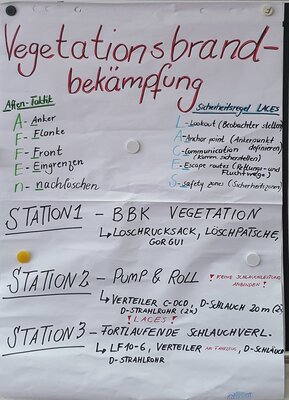 Vegetationsbrand-
bekämpfung
Affen-Taktik
A- Anker
F- Flanke
F- Front
E- Eingrenzen
n- nachlöschen
Sicherheitsregel LACES
L- Lookout (Beobachter stellen)
A- Anchor point (Ankerpunkt definieren)
C- Communication (Komm. sicherstellen)
E- Escape routes (Rettungs- und Fluchtwege)
S- Safety zones (Sicherheitszonen)
STATION 1 - BBK VEGETATION
↳ LÖSCHRUCKSACK, LÖSCHPATSCHE,
GORGUI
STATION 2 - PUMP & ROLL ! KEINE SCHLAUCHLEITUNG ANBINDEN!
↳ VERTEILER C-DCD, D-SCHLAUCH 20m
D-STRAHLROHR (2x)
! LACES!
STATION 3 - FORTLAUFENDE SCHLAUCHVERL.
↳ LF 10-6, VERTEILER AM FAHRZEUG, D-SCHLÄUCHE
D-STRAHLROHR